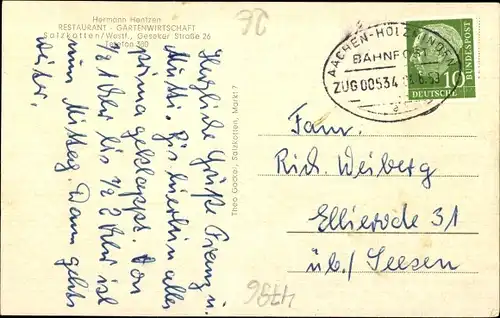 Hermann Hentzen
RESTAURANT - GARTENWIRTSCHAFT
Salzkotten/Westf., Geseker Straße 26
Telefon 380
Herzliche Grüße Franz u.
Mutti. Bis hierhin alles
prima geklappt. Von
1/2 1 Uhr bis 1/2 2 Uhr ist
nun Mittag. Dann gehts
weiter.
Theo Gockel, Salzkotten, Markt 7
AACHEN-HOLZMINDEN
BAHNPOST
ZUG 00534
10
DEUTSCHE
BUNDESPOST
Fam.
Rich. Weiberg
Ellierode 31
üb./ Seesen
4796